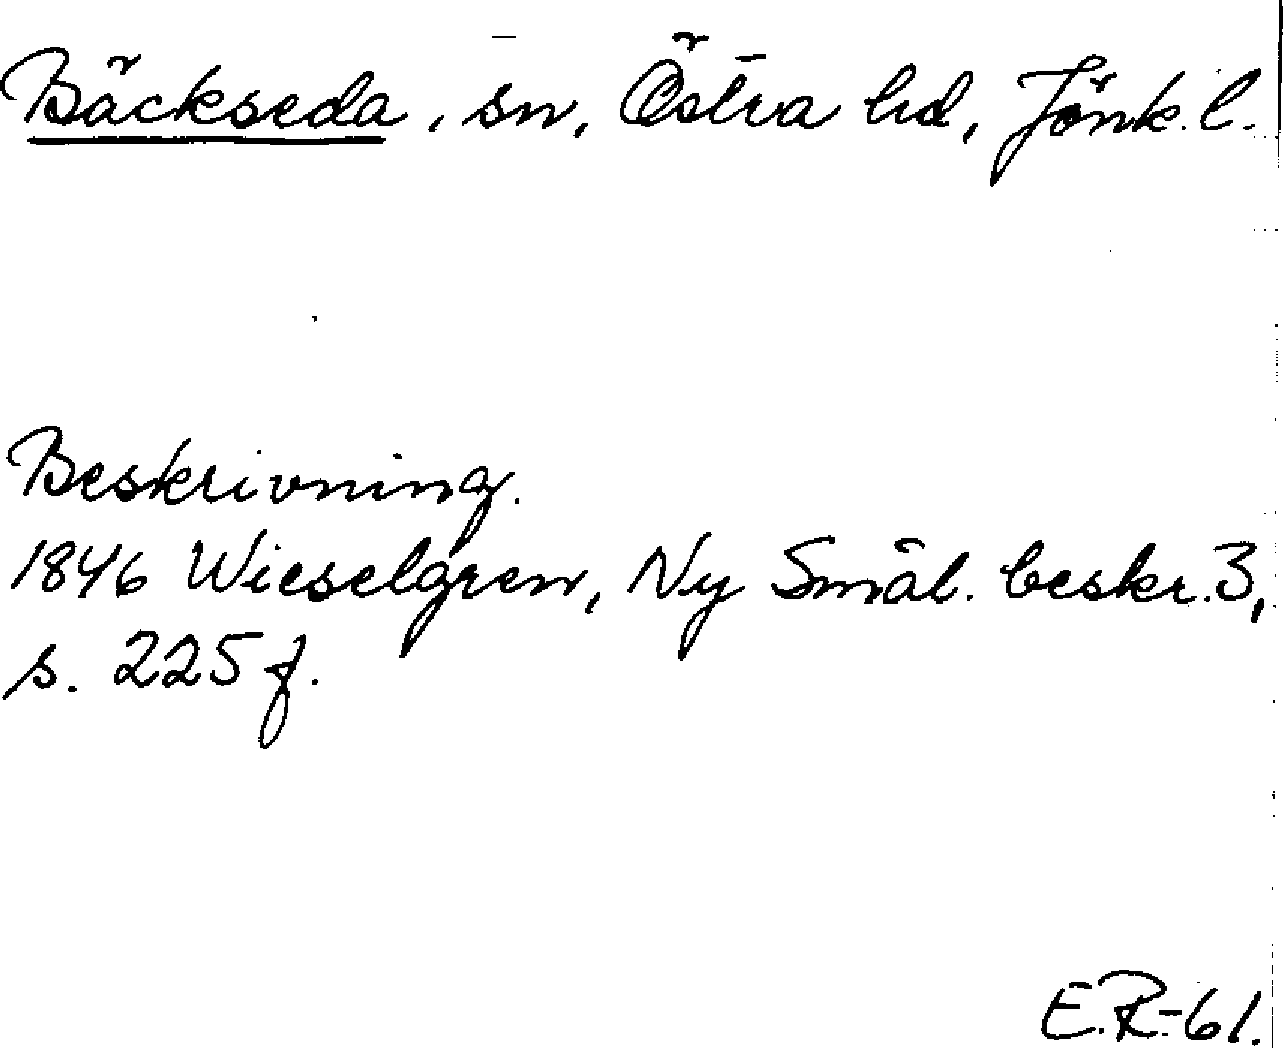 Bäckseda, sn, Östra hd, Jönk. l.
Beskrivning.
1846 Wieselgren, Ny Smål. beskr. 3,
s. 225 f.
E.R.-61.